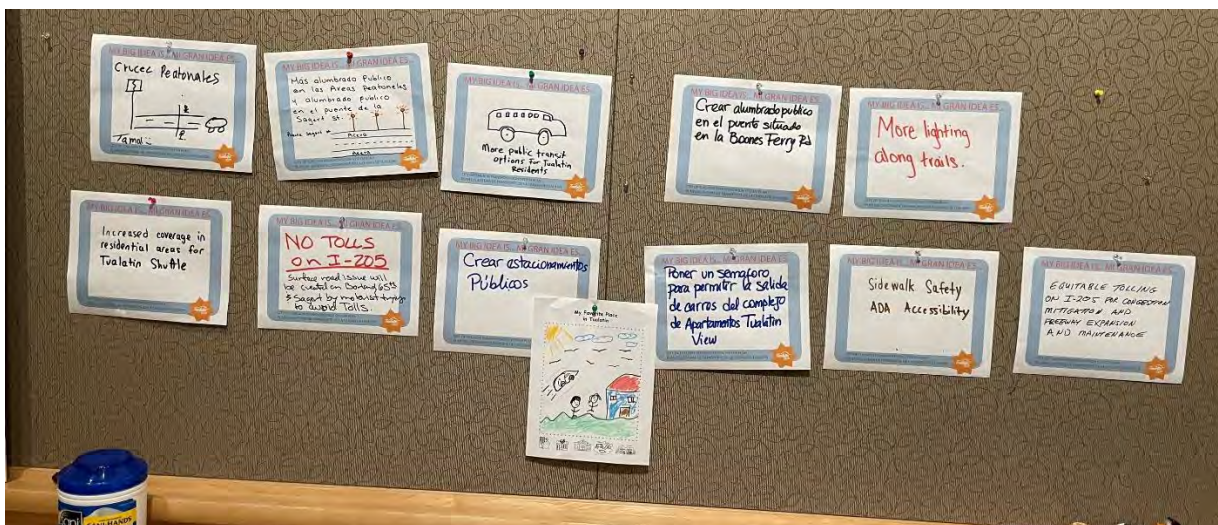 MY BIG IDEA IS... MI GRAN IDEA ES...
Cruces Peatonales
Tamal
MY BIG IDEA IS... MI GRAN IDEA ES...
Más alumbrado Publico
en las Areas Peatonales
y alumbrado publico
en el puente de la
Sagert St.
Acera
Acera
MY BIG IDEA IS... MI GRAN IDEA ES...
More public transit
options For Tualatin
Residents
MY BIG IDEA IS... MI GRAN IDEA ES...
Crear alumbrado publico
en el puente situado
en la Boones Ferry Rd
MY BIG IDEA IS... MI GRAN IDEA ES...
More lighting
along trails.
MY BIG IDEA IS... MI GRAN IDEA ES...
Increased coverage in
residential areas for
Tualatin Shuttle
MY BIG IDEA IS... MI GRAN IDEA ES...
NO TOLLS
on I-205
Surface road issue will
be created on Borland, 65th
& Sagert by motorist trying
to avoid Tolls.
MY BIG IDEA IS... MI GRAN IDEA ES...
Crear estacionamientos
Públicos
My Favorite Place
in Tualatin
MY BIG IDEA IS... MI GRAN IDEA ES...
Poner un semaforo
para permitir la salida
de carros del complejo
de Apartamentos Tualatin
View
MY BIG IDEA IS... MI GRAN IDEA ES...
Sidewalk Safety
ADA Accessibility
MY BIG IDEA IS... MI GRAN IDEA ES...
EQUITABLE TOLLING
ON I-205 FOR CONGESTION
MITIGATION AND
FREEWAY EXPANSION
AND MAINTENANCE
SANI HANDS